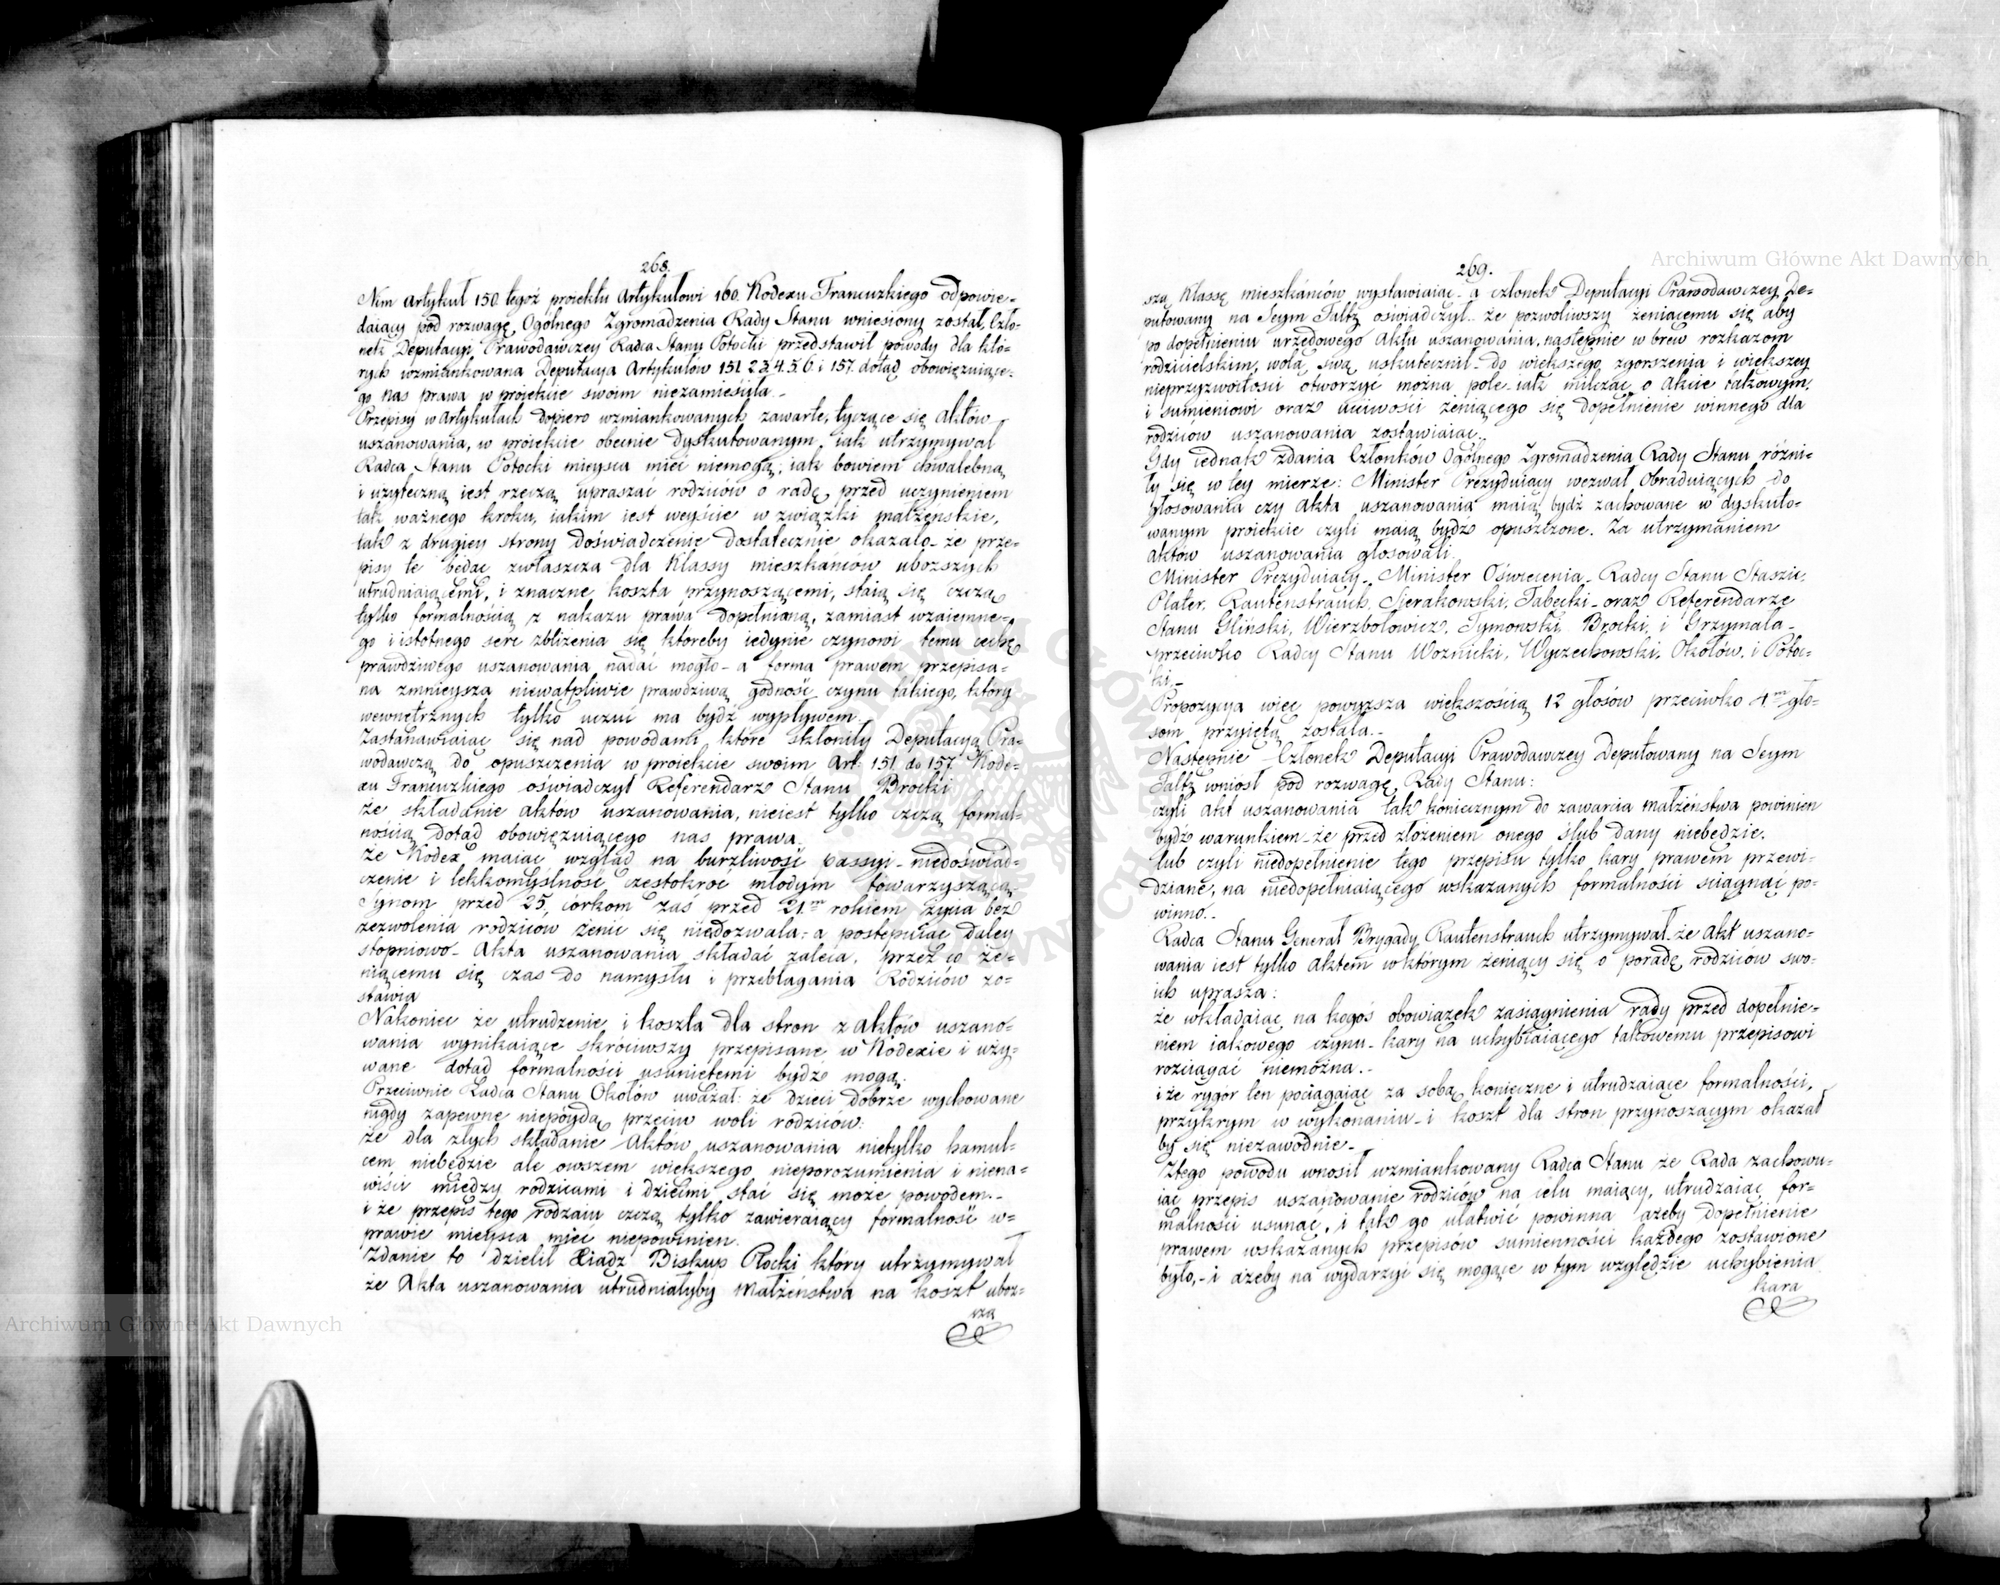 268.
Nim Artykuł 150. tegoż proiektu Artykułowi 160. Kodexu Francuzkiego odpowie-
daiący pod rozwagę Ogólnego Zgromadzenia Rady Stanu wniesiony został, Czło-
nek Deputacyi Prawodawczey Radca Stanu Potocki przedstawił powody dla któ-
rych wzmiankowana Deputacya Artykułów 151. 2. 3. 4. 5. 6. i 157. dotąd obowięzuiące-
go nas prawa w proiekcie swoim niezamieściła.-
Przepisy w Artykułach dopiero wzmiankowanych zawarte, tyczące się Aktów
uszanowania, w proiekcie obecnie dyskutowanym, iak utrzymywał
Radca Stanu Potocki mieysca mieć niemogą; iak bowiem chwalebną
i użyteczną iest rzeczą upraszać rodziców o radę przed uczynieniem
tak ważnego kroku, iakim iest weyście w związki małżeńskie,
tak z drugiey strony doświadczenie dostatecznie okazało- że prze-
pisy te będąc zwłaszcza dla Klassy mieszkańców uboższych
utrudniaiącemi, i znaczne koszta przynoszącemi, staią się czczą
tylko formalnością z nakazu prawa dopełnianą, zamiast wzaiemne-
go i istotnego serc zbliżenia się, któreby iedynie czynowi temu cechę
prawdziwego uszanowania nadać mogło- a forma prawem przepisa-
na zmnieysza niewątpliwie prawdziwą godność czynu takiego, który
wewnętrznych tylko uczuć ma bydź wypływem.
Zastanawiaiąc się nad powodami które skłoniły Deputacyą Pra-
wodawczą do opuszczenia w proiekcie swoim Art: 151. do 157. Kode-
xu Francuzkiego oświadczył Referendarz Stanu Brocki
że składanie aktów uszanowania, nieiest tylko czczą formal-
nością dotąd obowięzuiącego nas prawa.
że Kodex maiąc wzgląd na burzliwość passyi- niedoświad-
czenie i lekkomyślność częstokroć młodym towarzyszącą
Synom przed 25, córkom zaś przed 21.m rokiem życia bez
zezwolenia rodziców żenić się niedozwala: a postępuiąc daley
stopniowo- Akta uszanowania składać zaleca, przez co że-
niącemu się czas do namysłu i przebłagania Rodziców zo-
stawia
Nakoniec że utrudzenie i koszta dla stron z aktów uszano-
wania wynikaiące skróciwszy przepisane w Kodexie i uży-
wane dotąd formalności usuniętemi bydź mogą.
Przeciwnie Radca Stanu Okołów uważał: że dzieci dobrze wychowane
nigdy zapewne niepóydą przeciw woli rodziców:
że dla złych składanie Aktów uszanowania nietylko hamul-
cem niebędzie ale owszem większego nieporozumienia i niena-
wiści między rodzicami i dziećmi stać się może powodem.-
i że przepis tego rodzaiu czczą tylko zawieraiący formalność w-
prawie mieysca mieć niepowinien.
Zdanie to dzielił Xiądz Biskup Płocki który utrzymywał
że Akta uszanowania utrudniałyby Małżeństwa na koszt uboż-
szą
269.
szą Klassę mieszkańców wystawiaiąc- a członek Deputacyi Prawodawczey De-
putowany na Seym Faltz oświadczył- że pozwoliwszy żeniącemu się aby
po dopełnieniu urzędowego Aktu uszanowania, następnie wbrew rozkazom
rodzicielskim, wolą swą uskutecznił- do większego zgorszenia i większey
nieprzyzwoitości otworzyć można pole- iak milcząc o Akcie takowym,
i sumieniowi oraz uczciwości żeniącego się dopełnienie winnego dla
rodziców uszanowania zostawiaiąc.
Gdy iednak zdania Członków Ogólnego Zgromadzenia Rady Stanu różni-
ły się w tey mierze: Minister Prezyduiący wezwał Obraduiących do
głosowania czy Akta uszanowania maią bydź zachowane w dyskuto-
wanym proiekcie czyli maią bydź opuszczone. Za utrzymaniem
aktów uszanowania głosowali.
Minister Prezyduiący- Minister Oświecenia- Radcy Stanu Staszic,
Plater, Rautenstrauch, Sierakowski, Tabęcki- oraz Referendarze
Stanu Gliński, Wierzbołowicz, Tymowski, Brocki, i Grzymała-
przeciwko Radcy Stanu Woźnicki, Wyczechowski, Okołów, i Potoc-
ki.-
Propozycya więc powyższa większością 12 głosów przeciwko 4.m gło-
som przyiętą została.-
Następnie Członek Deputacyi Prawodawczey Deputowany na Seym
Faltz wniósł pod rozwagę Rady Stanu:
czyli akt uszanowania tak koniecznym do zawarcia Małżeństwa powinien
bydź warunkiem- że przed złożeniem onego ślub dany niebędzie.
lub czyli niedopełnienie tego przepisu tylko kary prawem przewi-
dziane, na niedopełniaiącego wskazanych formalności ściągnąć po-
winno.-
Radca Stanu Generał Brygady Rautenstrauch utrzymywał- że Akt uszano-
wania iest tylko aktem w którym żeniący się o poradę rodziców swo-
ich uprasza:
że wkładaiąc na kogoś obowiązek zasiągnienia rady przed dopełnie-
niem iakowego czynu- kary na uchybiaiącego takowemu przepisowi
rozciągać niemożna.-
i że rygór ten pociągaiąc za sobą konieczne i utrudzaiące formalności,
przykrym w wykonaniu- i koszt dla stron przynoszącym okazał
by się niezawodnie.-
Ztego powodu wnosił wzmiankowany Radca Stanu że Rada zachowu-
iąc przepis uszanowanie rodziców na celu maiący, utrudzaiąc for-
malności usunąć, i tak go ułatwić powinna ażeby dopełnienie
prawem wskazanych przepisów sumienności każdego zostawione
było,- i ażeby na wydarzyć się mogące w tym względzie uchybienia
kara
Archiwum Główne Akt Dawnych
Archiwum Główne Akt Dawnych